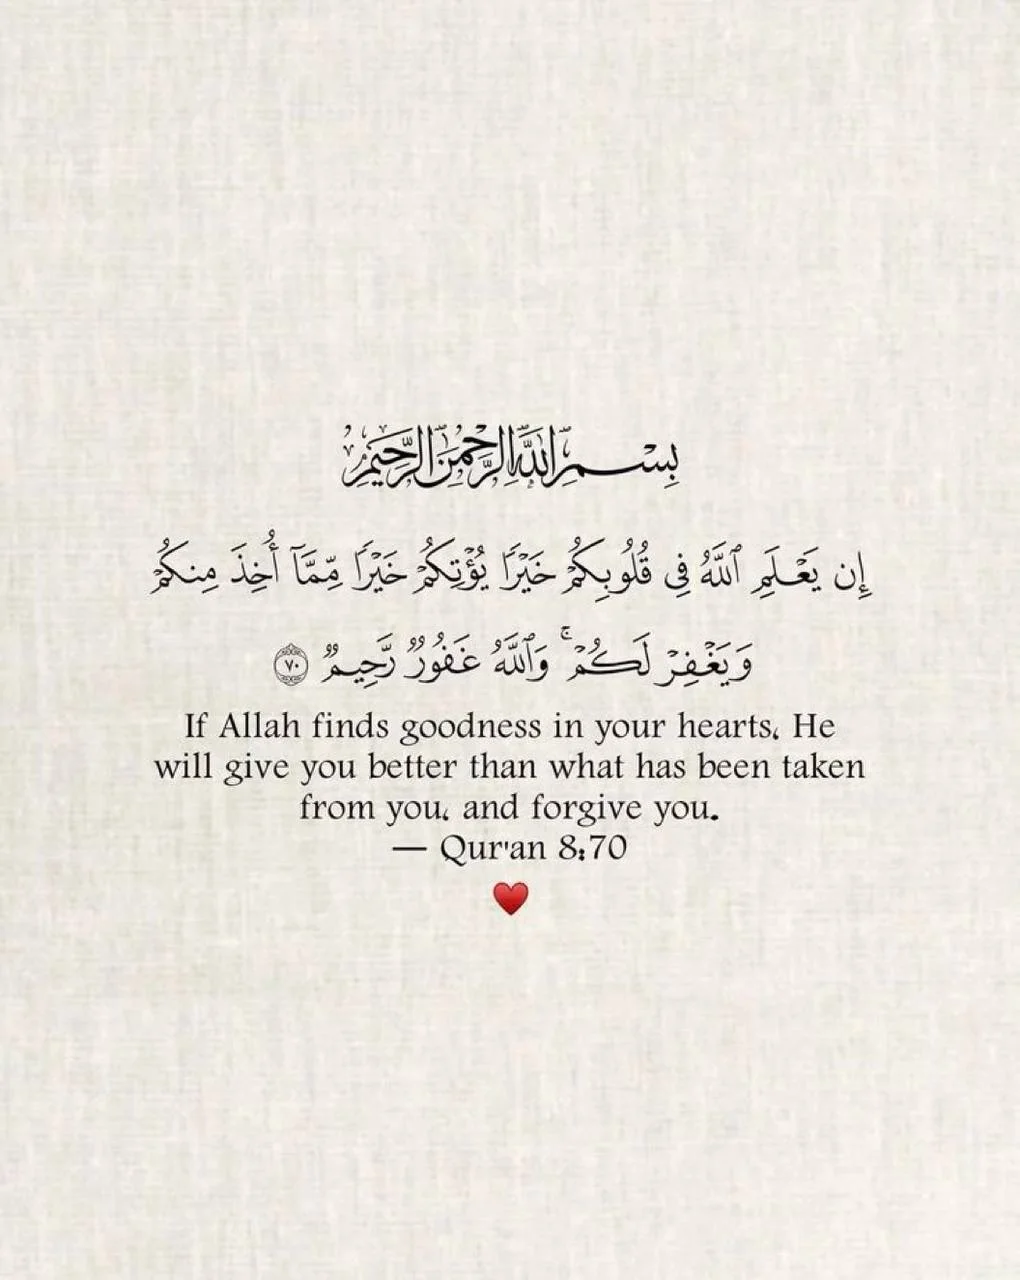 بِسْمِ اللَّهِ الرَّحْمَٰنِ الرَّحِيمِ
إِن يَعْلَمِ ٱللَّهُ فِى قُلُوبِكُمْ خَيْرًا يُؤْتِكُمْ خَيْرًا مِّمَّآ أُخِذَ مِنكُمْ
وَيَغْفِرْ لَكُمْ ۚ وَٱللَّهُ غَفُورٌ رَّحِيمٌ ٧٠
If Allah finds goodness in your hearts، He
will give you better than what has been taken
from you، and forgive you.
— Qur'an 8:70
♥️